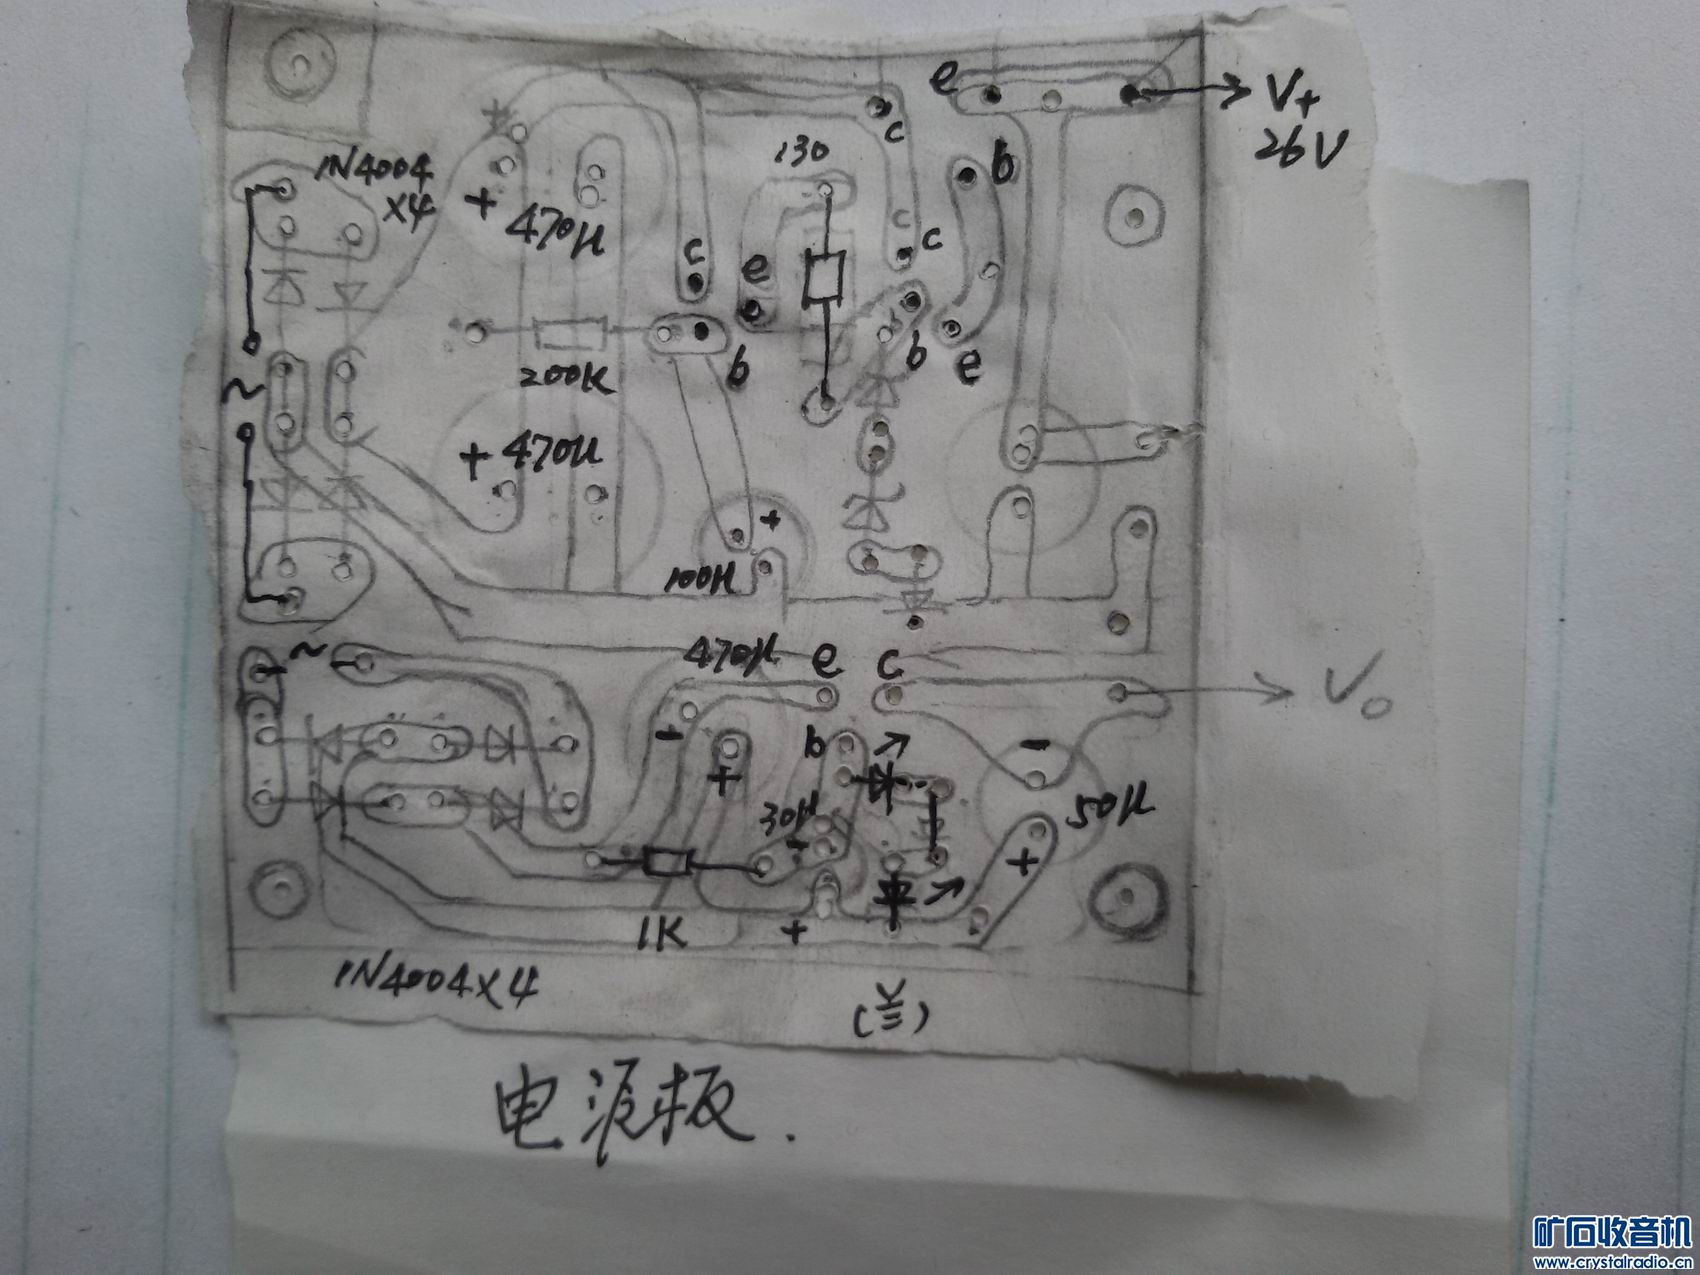 e
V+
26V
+
c
130
1N4004
×4
b
+
470μ
c
c
c
e
b
b
e
200K
~
+ 470μ
+
100μ
~
470μ
e
c
V0
-
b
-
+
30μ
50μ
-
+
1K
+
1N4004×4
电源板.
矿石收音机
www.crystalradio.cn